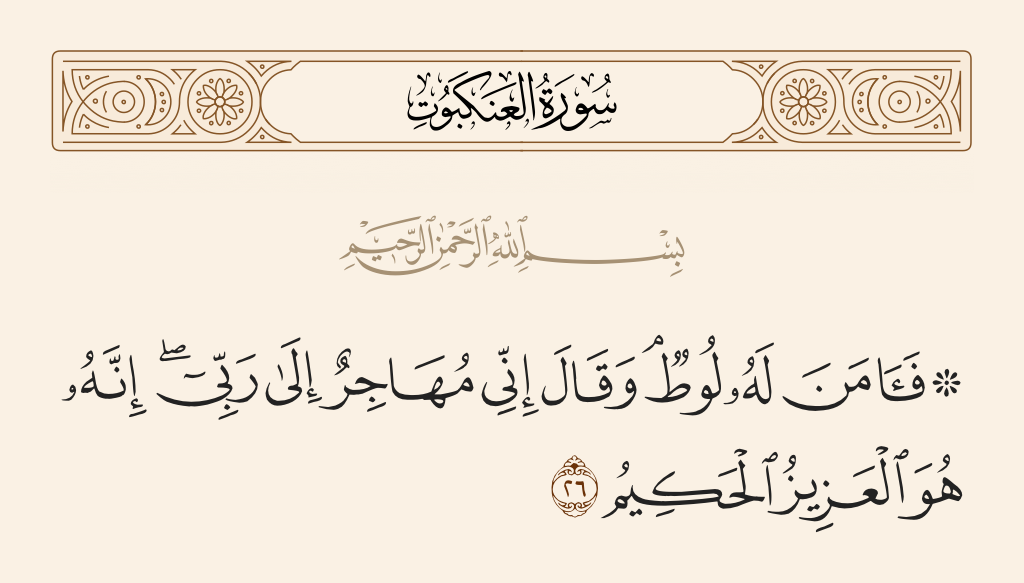 سُورَةُ العَنكَبُوتِ
بِسْمِ ٱللَّهِ ٱلرَّحْمَٰنِ ٱلرَّحِيمِ
۞ فَـَٔامَنَ لَهُۥ لُوطٌۘ وَقَالَ إِنِّى مُهَاجِرٌ إِلَىٰ رَبِّىٓۖ إِنَّهُۥ
هُوَ ٱلْعَزِيزُ ٱلْحَكِيمُ ٢٦